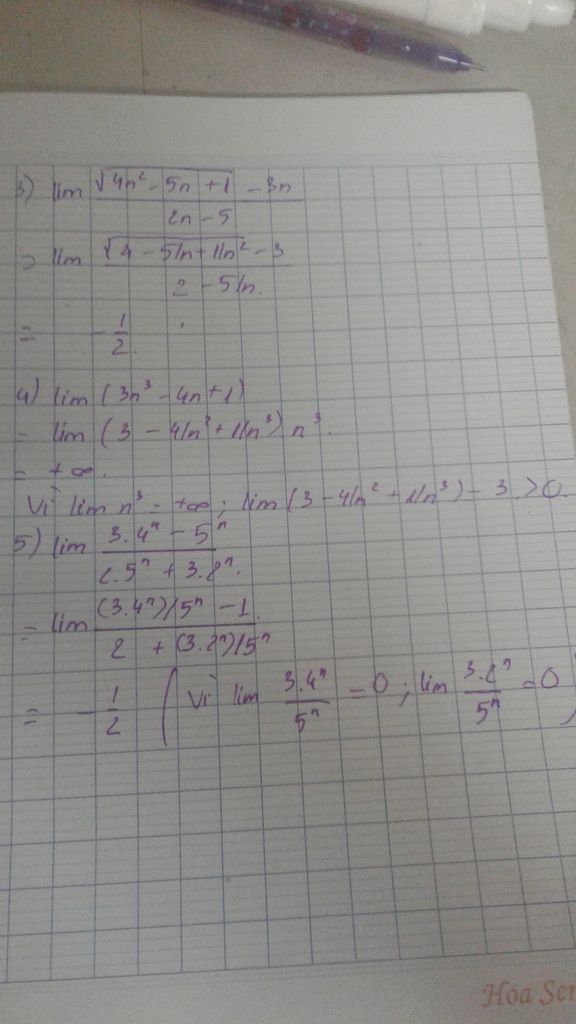 3) lim (√(4n² - 5n + 1) - 3n) / (2n - 5)
= lim (√(4 - 5/n + 1/n²) - 3) / (2 - 5/n)
= - 1/2
4) lim (3n³ - 4n + 1)
= lim (3 - 4/n² + 1/n³) n³.
= +∞.
Vì lim n³ = +∞; lim (3 - 4/n² + 1/n³) = 3 > 0.
5) lim (3.4ⁿ - 5ⁿ) / (2.5ⁿ + 3.2ⁿ)
= lim ((3.4ⁿ)/5ⁿ - 1) / (2 + (3.2ⁿ)/5ⁿ)
= - 1/2 (Vì lim 3.4ⁿ/5ⁿ = 0; lim 3.2ⁿ/5ⁿ = 0)
Hoa Sen